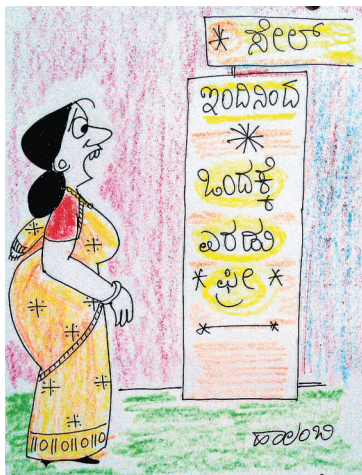 * ಸೇಲ್
ಇಂದಿನಿಂದ
*
ಒಂದಕ್ಕೆ
ಎರಡು
* ಫ್ರೀ *
ಹಾಲಂಬಿ